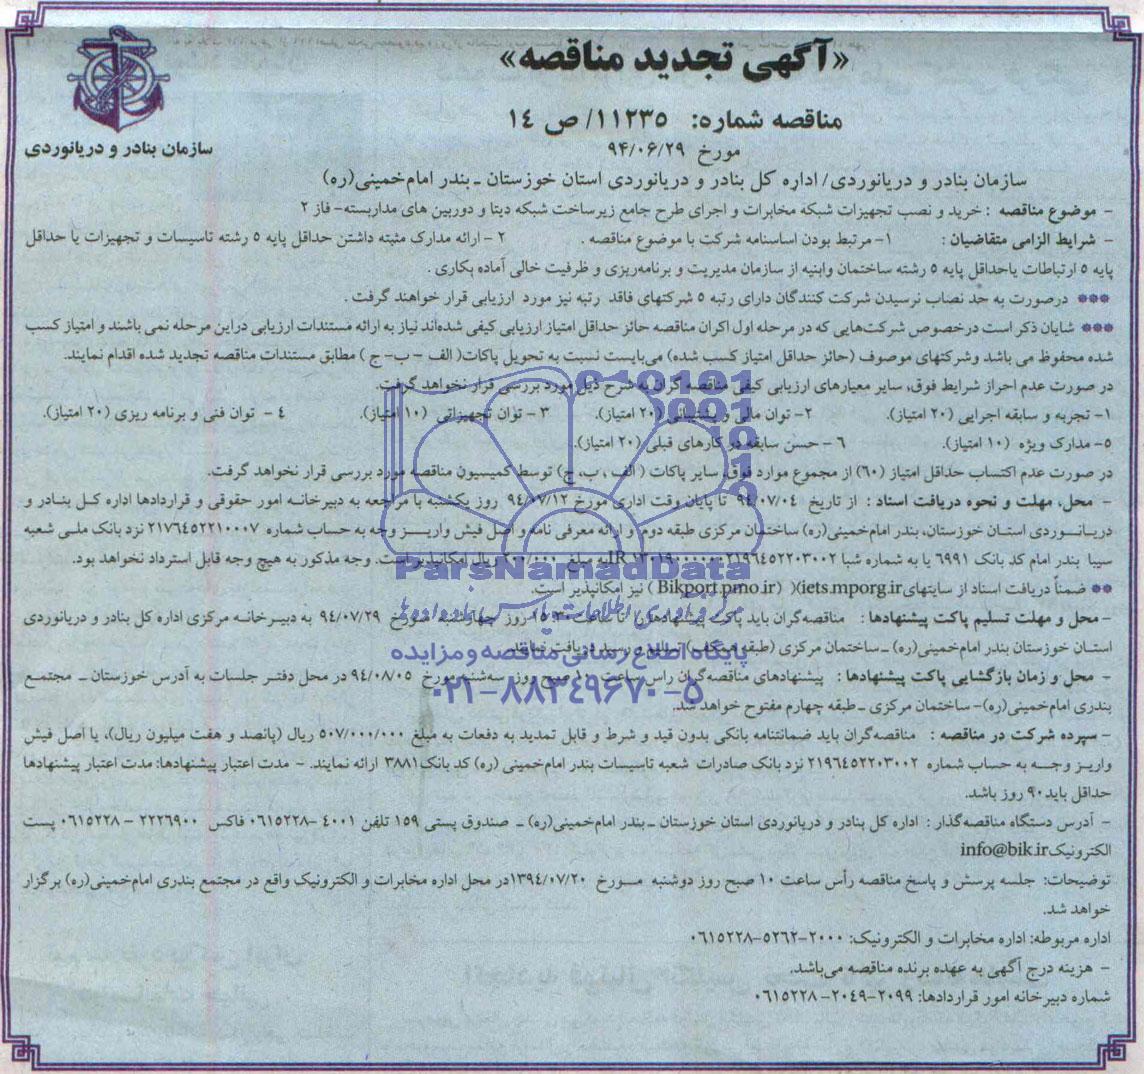 «آگهی تجدید مناقصه»
مناقصه شماره: ۱۱۲۳۵/ ص ۱۴
مورخ ۹۴/۰۶/۲۹
سازمان بنادر و دریانوردی
سازمان بنادر و دریانوردی/ اداره کل بنادر و دریانوردی استان خوزستان ـ بندر امام‌خمینی(ره)
- موضوع مناقصه : خرید و نصب تجهیزات شبکه مخابرات و اجرای طرح جامع زیرساخت شبکه دیتا و دوربین های مداربسته- فاز ۲
- شرایط الزامی متقاضیان : ۱- مرتبط بودن اساسنامه شرکت با موضوع مناقصه . ۲- ارائه مدارک مثبته داشتن حداقل پایه ۵ رشته تاسیسات و تجهیزات یا حداقل
پایه ۵ ارتباطات یاحداقل پایه ۵ رشته ساختمان وابنیه از سازمان مدیریت و برنامه‌ریزی و ظرفیت خالی آماده بکاری .
*** درصورت به حد نصاب نرسیدن شرکت کنندگان دارای رتبه ۵ شرکتهای فاقد رتبه نیز مورد ارزیابی قرار خواهند گرفت .
*** شایان ذکر است درخصوص شرکت‌هایی که در مرحله اول اکران مناقصه حائز حداقل امتیاز ارزیابی کیفی شده‌اند نیاز به ارائه مستندات ارزیابی دراین مرحله نمی باشند و امتیاز کسب
شده محفوظ می باشد وشرکتهای موصوف (حائز حداقل امتیاز کسب شده) می‌بایست نسبت به تحویل پاکات( الف - ب- ج ) مطابق مستندات مناقصه تجدید شده اقدام نمایند.
در صورت عدم احراز شرایط فوق، سایر معیارهای ارزیابی کیفی مناقصه گران به شرح ذیل مورد بررسی قرار نخواهد گرفت.
۱- تجربه و سابقه اجرایی (۲۰ امتیاز). ۲- توان مالی و پشتیبانی (۲۰ امتیاز). ۳- توان تجهیزاتی (۱۰ امتیاز). ۴- توان فنی و برنامه ریزی (۲۰ امتیاز).
۵- مدارک ویژه (۱۰ امتیاز). ۶- حسن سابقه در کارهای قبلی (۲۰ امتیاز).
در صورت عدم اکتساب حداقل امتیاز (۶۰) از مجموع موارد فوق، سایر پاکات ( الف ، ب، ج) توسط کمیسیون مناقصه مورد بررسی قرار نخواهد گرفت.
- محل، مهلت و نحوه دریافت اسناد : از تاریخ ۹۴/۰۷/۰۴ تا پایان وقت اداری مورخ ۹۴/۰۷/۱۲ روز یکشنبه با مراجعه به دبیرخانـه امور حقوقی و قراردادها اداره کـل بنـادر و
دریـانـوردی استـان خوزستان، بندر امام‌خمینی(ره) ساختمان مرکزی طبقه دوم و ارائه معرفی نامه و اصل فیش واریـز وجه به حساب شماره ۲۱۷۶۴۵۲۲۱۰۰۰۷ نزد بانک ملـی شعبه
سیبا بندر امام کد بانک ۶۹۹۱ یا به شماره شبا به مبلغ ۲۰۰/۰۰۰ ریال امکانپذیر است. وجه مذکور به هیچ وجه قابل استرداد نخواهد بود.
** ضمناً دریافت اسناد از سایتهای iets.mporg.ir)( (Bikport.pmo.ir ) نیز امکانپذیر است.
-محل و مهلت تسلیم پاکت پیشنهادها : مناقصه‌گران باید پاکت پیشنهادهای تا ساعت ۱۵:۳۰ روز چهارشنبه مـورخ ۹۴/۰۷/۲۹ به دبیـرخانـه مرکزی اداره کل بنادر و دریانوردی
استـان خوزستان بندر امام‌خمینی(ره) ـ ساختمان مرکزی (طبقه همکف) تسلیم و رسید دریافت نمایند.
- محل و زمان بازگشایی پاکت پیشنهادها : پیشنهادهای مناقصه‌گران راس ساعت ۱۰ صبح روز سه‌شنبه مورخ ۹۴/۰۸/۰۵ در محل دفتـر جلسات به آدرس خوزستان ـ مجتمـع
بندری امام‌خمینی(ره)- ساختمان مرکزی ـ طبقه چهارم مفتوح خواهد شد.
- سپرده شرکت در مناقصه : مناقصه‌گران باید ضمانتنامه بانکی بدون قید و شرط و قابل تمدید به دفعات به مبلغ ۵۰۷/۰۰۰/۰۰۰ ریال (پانصد و هفت میلیون ریال)، یا اصل فیش
واریـز وجـه به حساب شماره ۲۱۹۶۴۵۲۲۰۳۰۰۲ نزد بانک صادرات شعبه تاسیسات بندر امام‌خمینی (ره) کد بانک۳۸۸۱ ارائه نمایند. - مدت اعتبار پیشنهادها: مدت اعتبار پیشنهادها
حداقل باید ۹۰ روز باشد.
- آدرس دستگاه مناقصه‌گذار : اداره کل بنادر و دریانوردی استان خوزستان ـ بندر امام‌خمینی(ره) ـ صندوق پستی ۱۵۹ تلفن ۴۰۰۱ -۰۶۱۵۲۲۸ فاکس ۲۲۲۶۹۰۰ - ۰۶۱۵۲۲۸ پست
الکترونیک info@bik.ir
توضیحات: جلسه پرسش و پاسخ مناقصه رأس ساعت ۱۰ صبح روز دوشنبه مـورخ ۱۳۹۴/۰۷/۲۰در محل اداره مخابرات و الکترونیک واقع در مجتمع بندری امام‌خمینی(ره) برگزار
خواهد شد.
اداره مربوطه: اداره مخابرات و الکترونیک: ۲۰۰۰-۵۲۶۲-۰۶۱۵۲۲۸
- هزینه درج آگهی به عهده برنده مناقصه می‌باشد.
شماره دبیرخانه امور قراردادها: ۲۰۹۹-۲۰۴۹- ۰۶۱۵۲۲۸
ParsNamadData
پایگاه اطلاع رسانی مناقصه و مزایده
۰۲۱-۸۸۳۴۹۶۷۰-۵